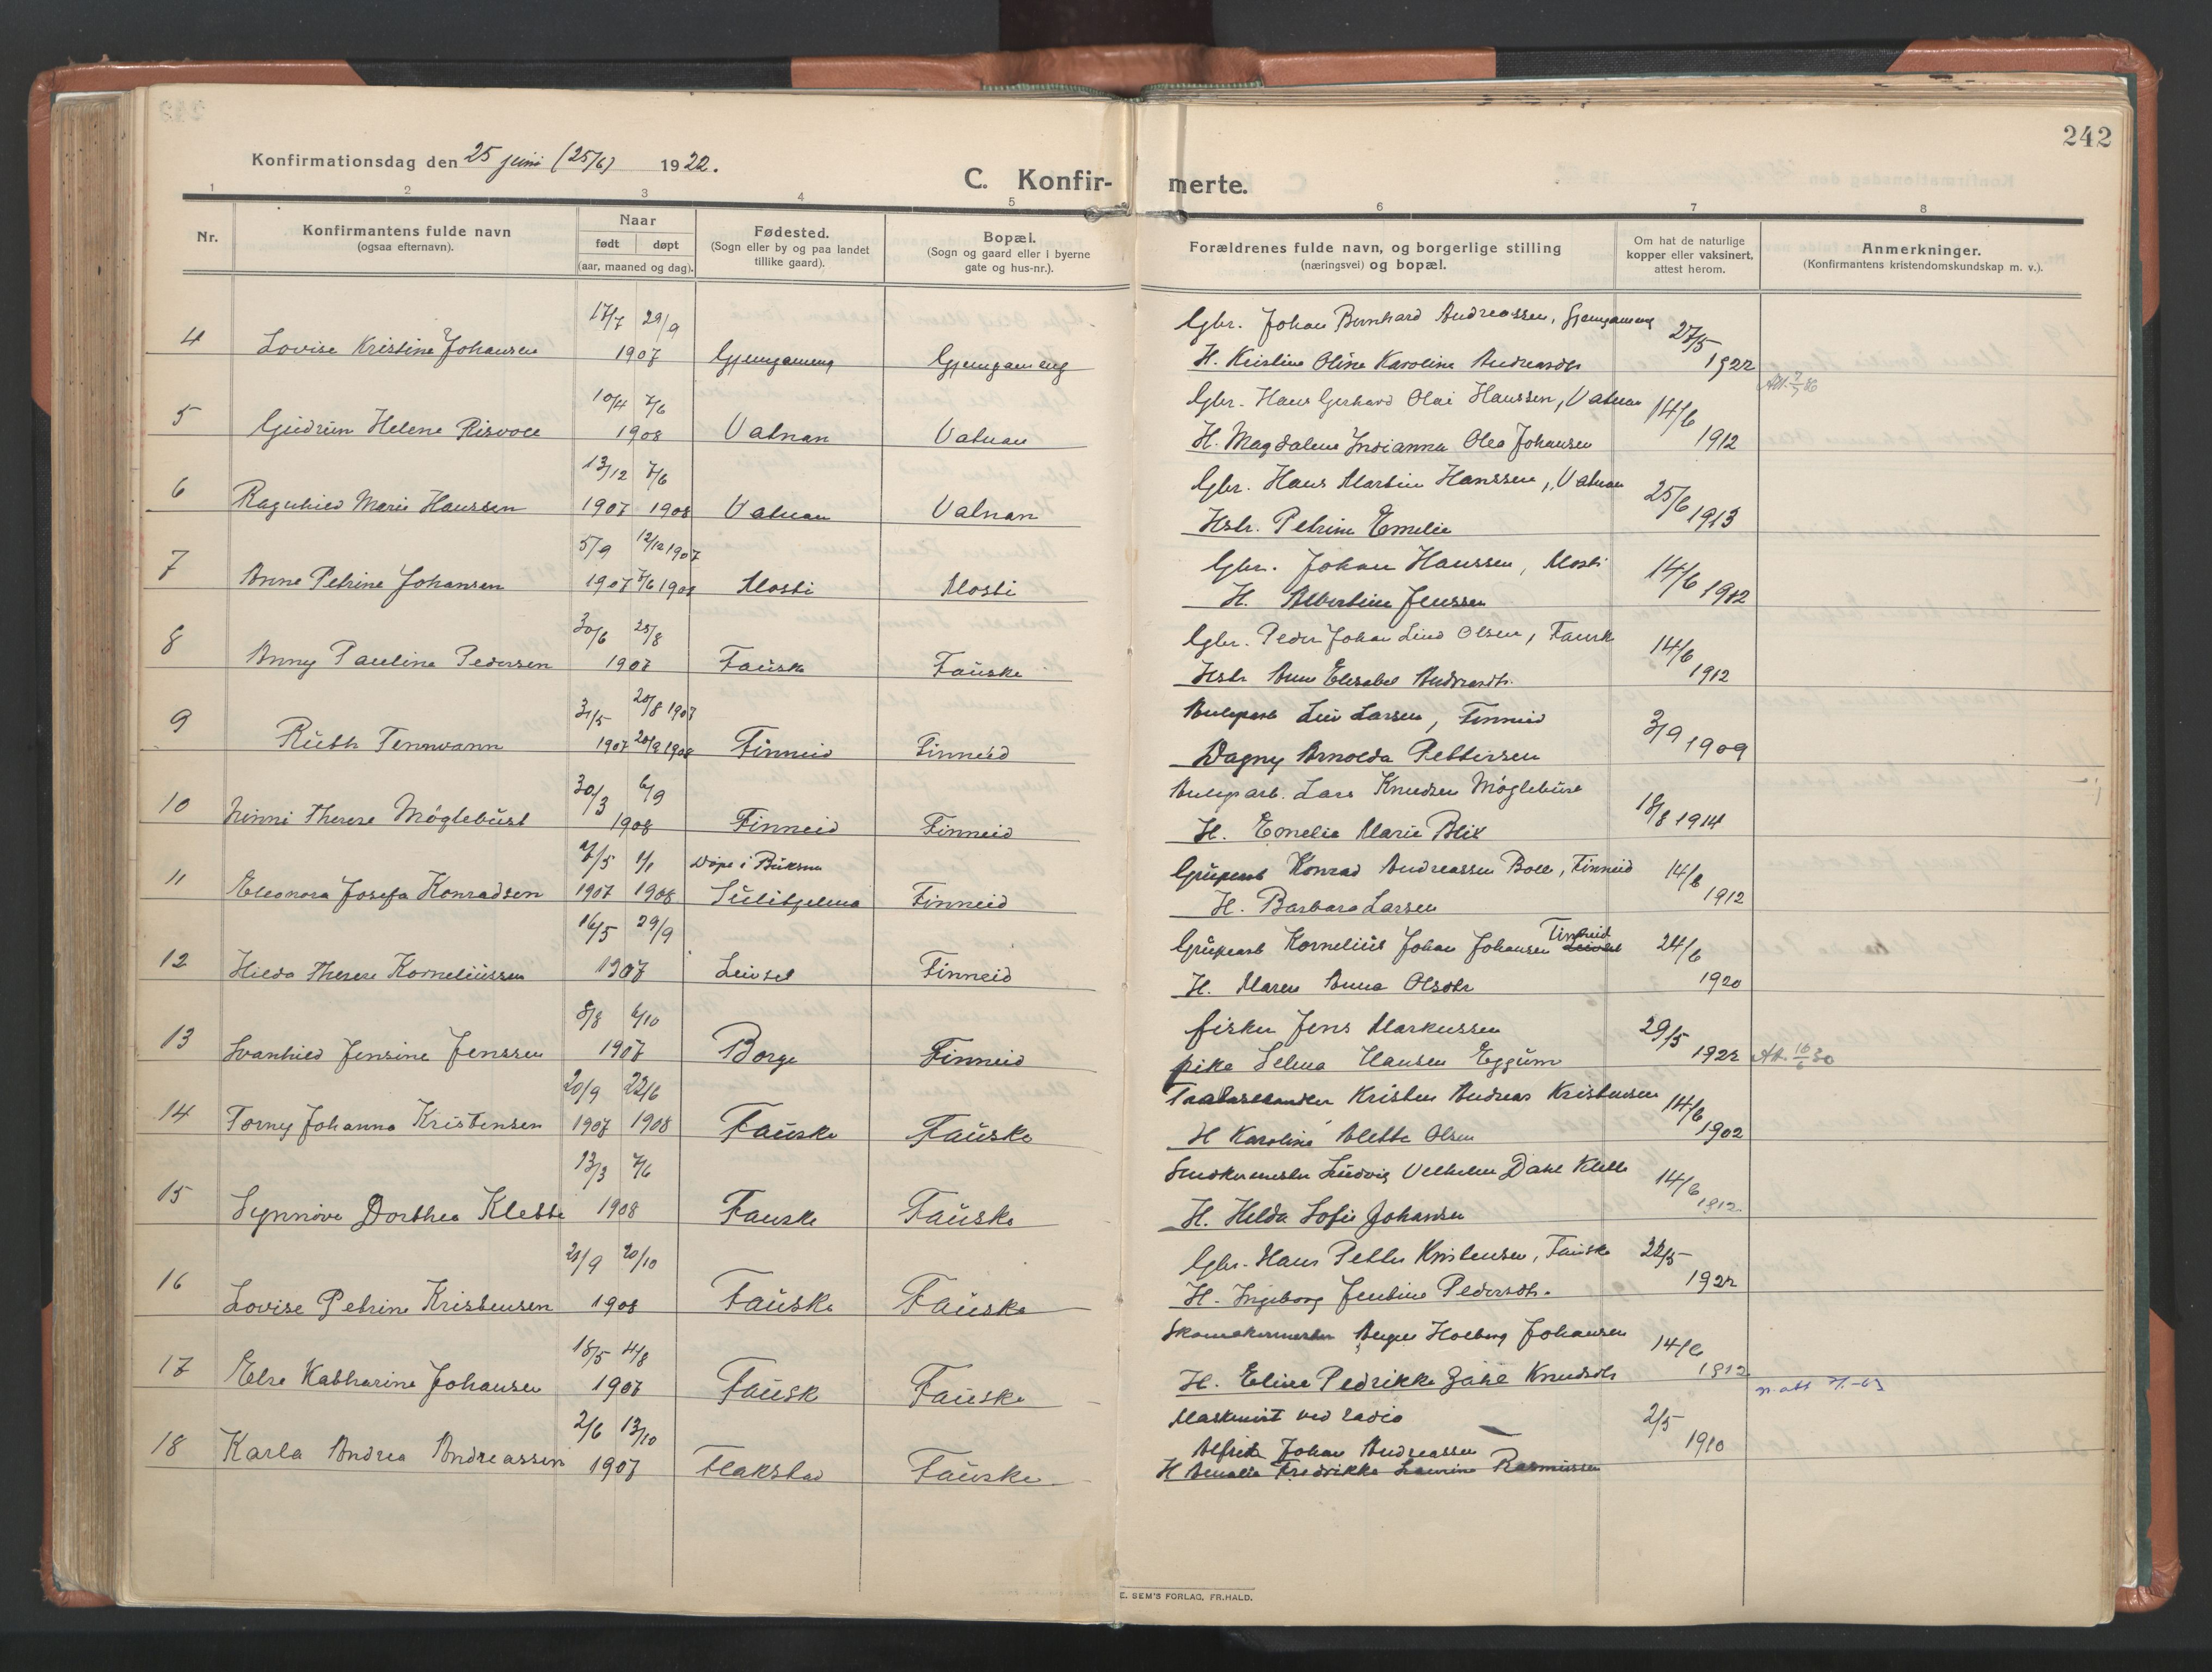 242
Konfirmationsdag den 25 juni (25/6) 1922.
C. Konfir-
merte.
1 2 3 4 5 6 7 8
Nr.
Konfirmantens fulde navn
(ogsaa efternavn).
Naar
født døpt
(aar, maaned og dag).
Fødested.
(Sogn eller by og paa landet
tillike gaard).
Bopæl.
(Sogn og gaard eller i byerne
gate og hus-nr.).
Forældrenes fulde navn, og borgerlige stilling
(næringsvei) og bopæl.
Om hat de naturlige
kopper eller vaksinert,
attest herom.
Anmerkninger.
(Konfirmantens kristendomskundskap m. v.).
17/7 29/9 Gbr. Johan Bernhard Andreassen, Gjemgameng 27/5
4 Lovise Kristine Johansen 1907 Gjemgameng Gjemgameng H. Kristine Oline Karoline Andreasdtr 1922
10/4 7/6 Gbr. Hans Gerhard Olai Hanssen, Vatnan 14/6
5 Gudrun Helene Risvoll 1908 Vatnan Vatnan H. Magdalena Indianna Olea Johansen 1912
13/12 7/6 Gbr. Hans Martin Hanssen, Vatnan 25/6
6 Ragnhild Marie Hanssen 1907 1908 Vatnan Valnan Hstr. Petrine Emelie 1913
5/9 12/12 1907 Gbr. Johan Hanssen, Mosti 14/6
7 Anne Petrine Johansen 1907 7/6 1908 Mosti Mosti H. Albertine Jenssen 1912
30/6 25/8 Gbr. Peder Johan Lind Olsen, Fausk 14/6
8 Anny Pauline Pedersen 1907 Fauske Fauske Hstr Anne Elisabet Andreasdtr. 1912
31/5 20/8 1907 Anlegsarb Leiv Larsen, Finneid 3/9
9 Ruth Tennvann 1907 20/9 1908 Finneid Finneid Dagny Arnolda Pettersen 1909
30/3 6/9 Anlegsarb. Lars Knudsen Møglebust 18/8
10 Ninni Therese Møglebust 1908 Finneid Finneid H. Emelie Marie Blix 1914
7/5 1/1 Døpt i Buksnes Grubearb Konrad Andreassen Boll, Finneid 14/6
11 Eleonora Josefa Konradsen 1907 1908 Sulitjelma Finneid H. Barbara Larsen 1912
16/5 29/9 Grubearb Kornelius Johan Johansen Finneid 24/6
12 Hilda Therese Korneliussen 1907 Leivset Finneid H. Maren Anna Olsdtr 1920
8/8 6/10 fisker Jens Markussen 29/5
13 Svanhild Jensine Jenssen 1907 Borge Finneid pike Selma Hansen Eggum 1922 Att. 16/6 30
20/9 22/6 Kristen Andreas Kristensen 14/6
14 Torny Johanna Kristensen 1907 1908 Fauske Fauske H Karoline Alette Olsen 1902
13/3 7/6 Snedkermester Ludvig Vilhelm Dahl Klette 14/6
15 Synnøve Dorthea Klette 1908 Fauske Fauske H. Hilda Sofie Johansen 1912.
21/9 20/10 Gbr. Hans Petter Kristensen, Fauske 22/5
16 Lovise Petrine Kristensen 1908 Fauske Fauske H. Ingeborg Jentine Pedersdtr. 1922
18/5 4/8 Skomakermester Holberg Johansen 14/6
17 Else Katharine Johansen 1907 Fausk Fauske H. Eline Pedrikke Zahl Knudsdtr 1912
2/6 13/10 Maskinist ved radio 2/5
18 Karla Andrea Andreassen 1907 Flakstad Fauske Alfred Johan Andreassen 1910
H Amalie Fredrikke Laurine Rasmussen
E. SEM'S FORLAG, FR.HALD.